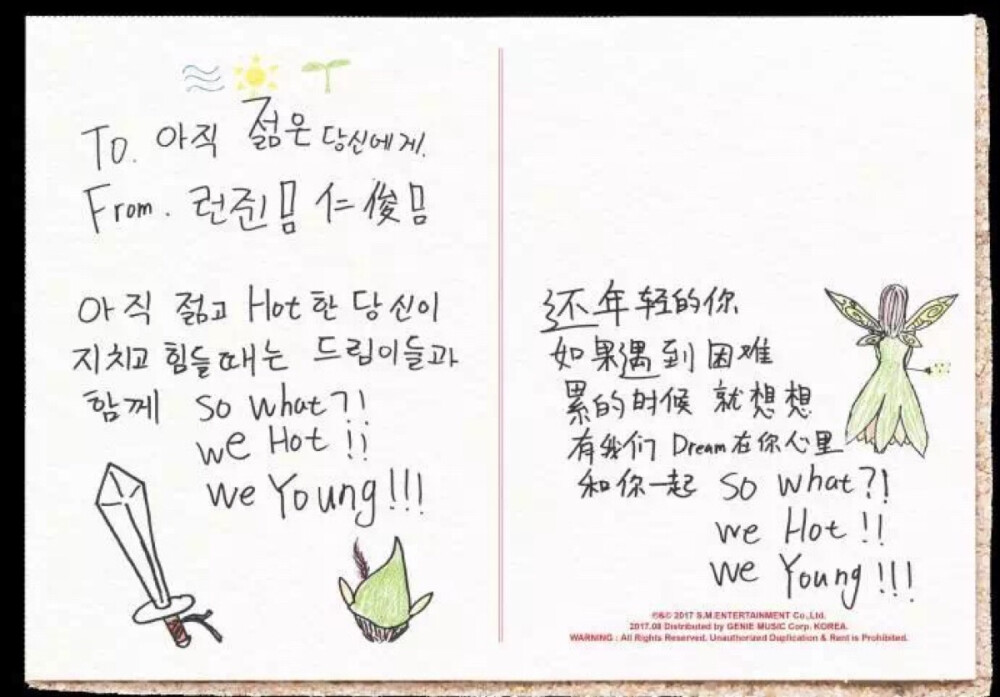 To. 아직 젊은 당신에게.
From. 런쥔 仁俊
아직 젊고 Hot한 당신이
지치고 힘들때는 드림이들과
함께 So What?!
We Hot!!
We Young!!!
还年轻的你
如果遇到困难
累的时候 就想想
有我们 Dream在你心里
和你一起 So What?!
We Hot!!
We Young!!!
℗&© 2017 S.M.ENTERTAINMENT Co.,Ltd.
2017.08 Distributed by GENIE MUSIC Corp. KOREA.
WARNING : All Rights Reserved. Unauthorized Duplication & Rent is Prohibited.